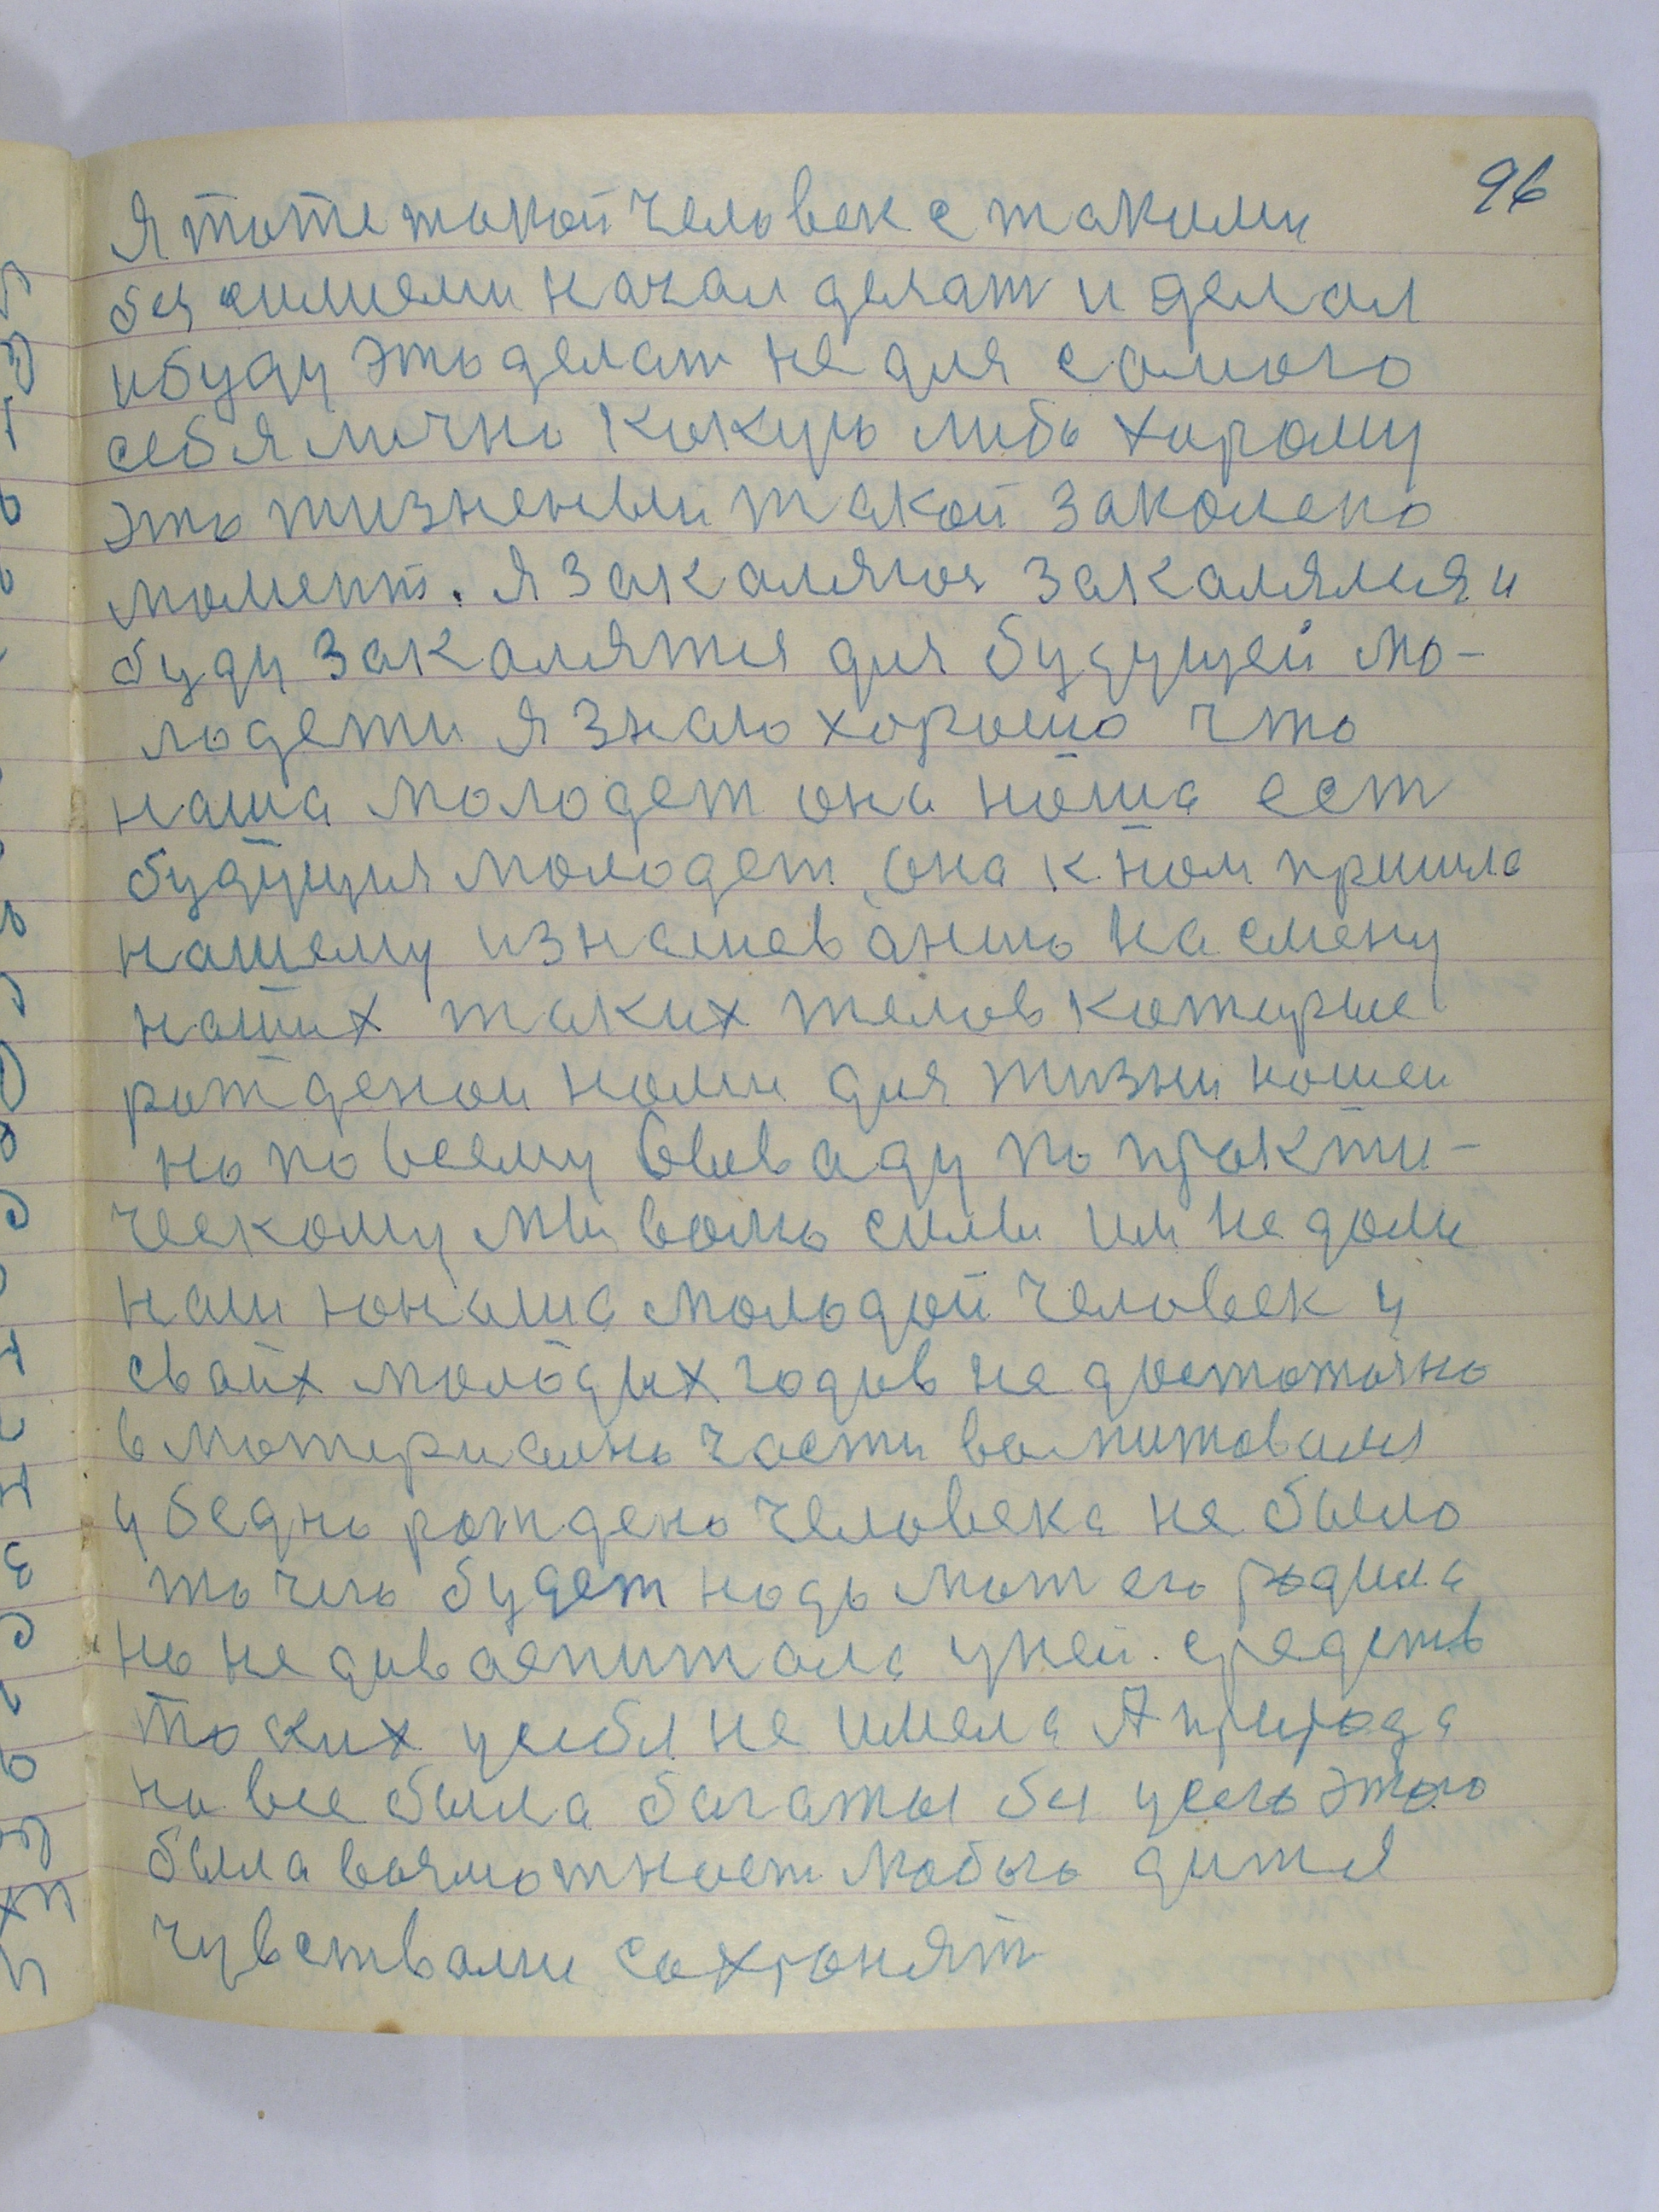 96
Я тоже токой человек с такими
без силиеми начал делат и делал
и буду это делат не для самого
себя лично какую либо хорому
это жизненыи такой законено
момент. Я закаляюс закалялся и
буду закалятся для будущей мо-
лодежи я знаю хорошо что
наша молодеж она наша ест
будущия молодеж она к нам пришла
нашему изнашеванию на смену
наших таких телов которые
рожденои нами для жизни нашеи
но по всему вываду по практи-
ческому мы волю силы им не дали
наш юнаша молодой человек у
своих молодых годов не достоточно
в материално части воспитовался
у бедно рождено человека не было
то чего будет надо мат его родила
но не довоспитала у ней средств
таких у себя не имела А природа
на все была багаты бы у сего этого
была возможност любого дитя
чувствами сохронят